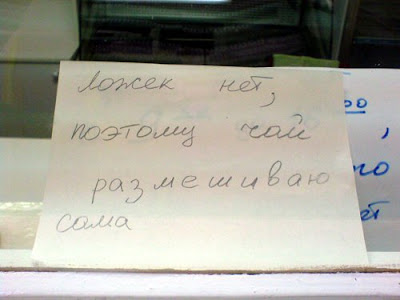 Ложек нет,
поэтому чай
размешиваю
сама